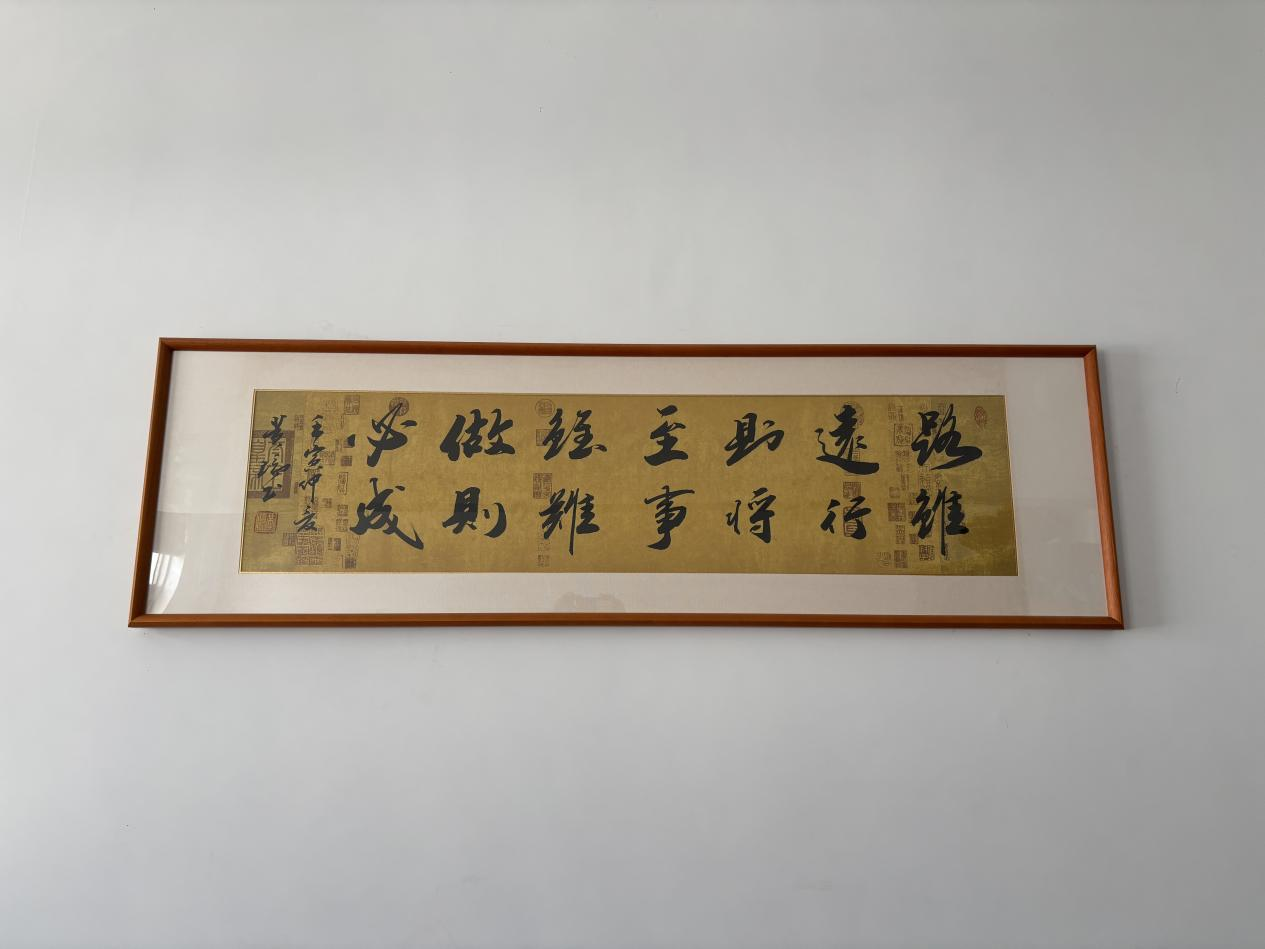 路雖
遠行
則将
至事
雖難
做則
必成
壬寅仲夏